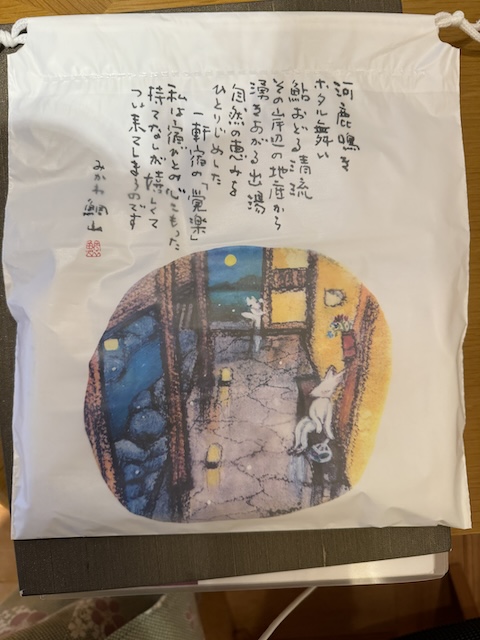 河鹿鳴き
ホタル舞い
鮎おどる清流
その岸辺の地底から
湧きあがる出湯
自然の恵みを
ひとりじめした
一軒宿の「覚楽」
私は宿がとの心こもった
持てなしが嬉しくて
つい来てしまうのです
みかわ 鯛山